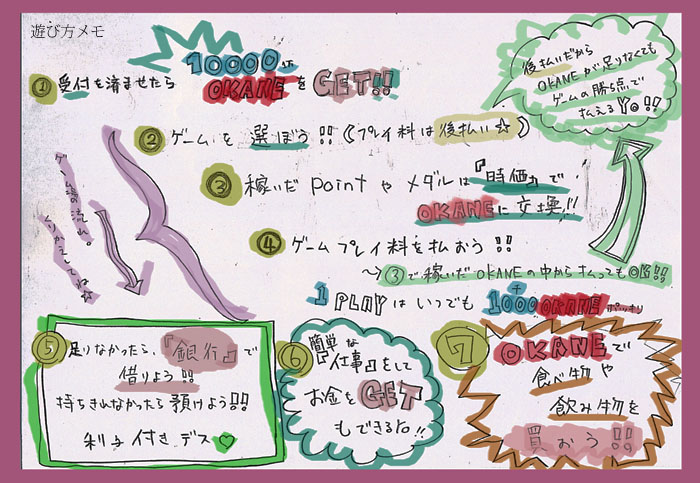 遊び方メモ
① 受付を済ませたら 10000 OKANEをGET!!
② ゲームを選ぼう!!(プレイ料は後払い☆)
後払いだから
OKANEが足りなくても
ゲームの勝ち点で
払えるYo!!
③ 稼いだ pointや メダルは『時価』で
OKANEに交換!!
④ ゲームプレイ料を払おう!!
~→ ③で稼いだOKANEの中から払ってもOK!!
1 PLAYは いつでも 1000 OKANE ポッキリ
ゲーム場の流れ。
くりかえしてね☆
⑤ 足りなかったら、『銀行』で
借りよう!!
持ちきれなかったら預けよう!!
利子付きデス♡
⑥ 簡単な
『仕事』をして
お金をGET
もできる!!
7 OKANEで
食べ物や
飲み物を
買おう!!